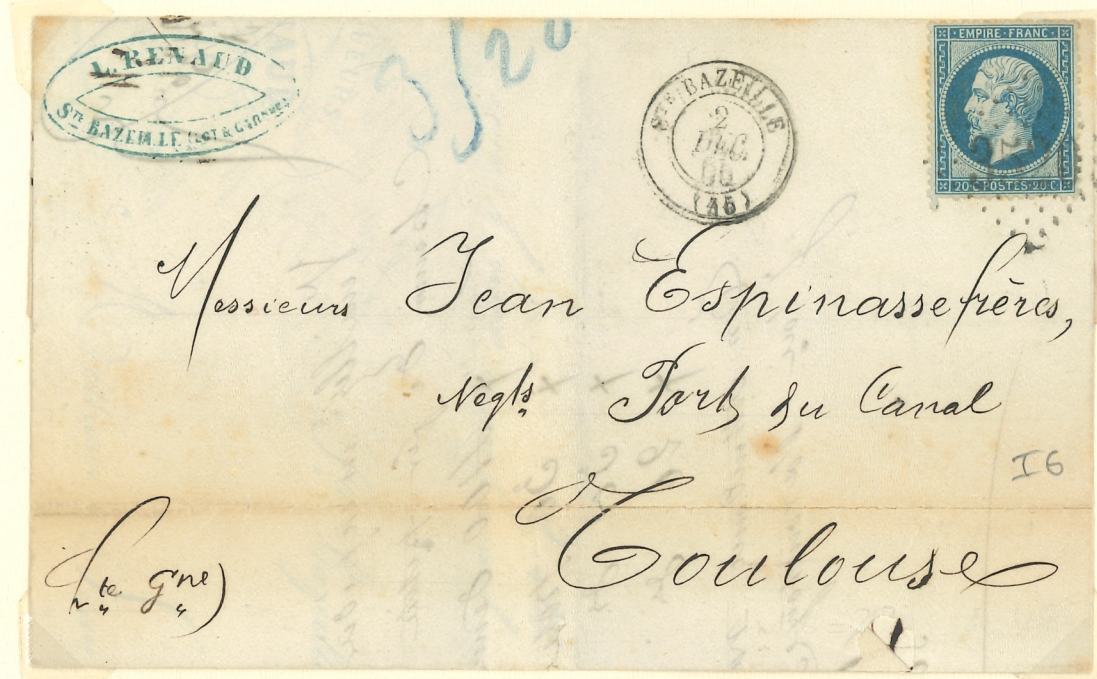 L. RENAUD
STE BAZEILLE (LOT & GARONNE)
3/20
STE BAZEILLE
2
DEC.
(45)
EMPIRE · FRANC
20 C POSTES 20 C
Messieurs Jean Espinasse frères,
Negts Port du Canal
I6
Toulouse
(hte Gne)